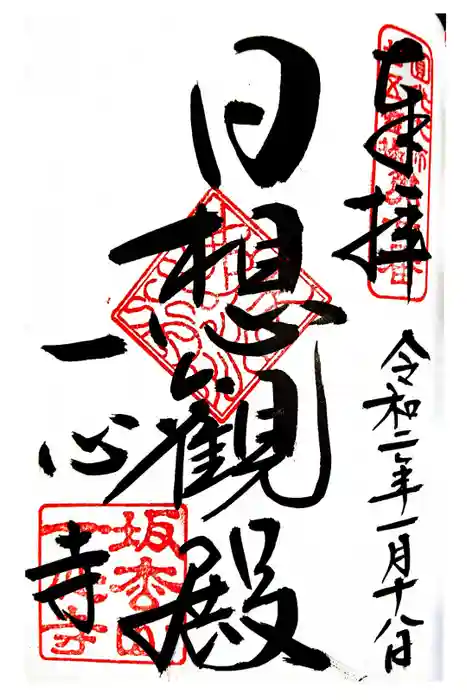 奉拝
令和二年一月十八日
日想観殿
一心寺
坂松山
一心寺